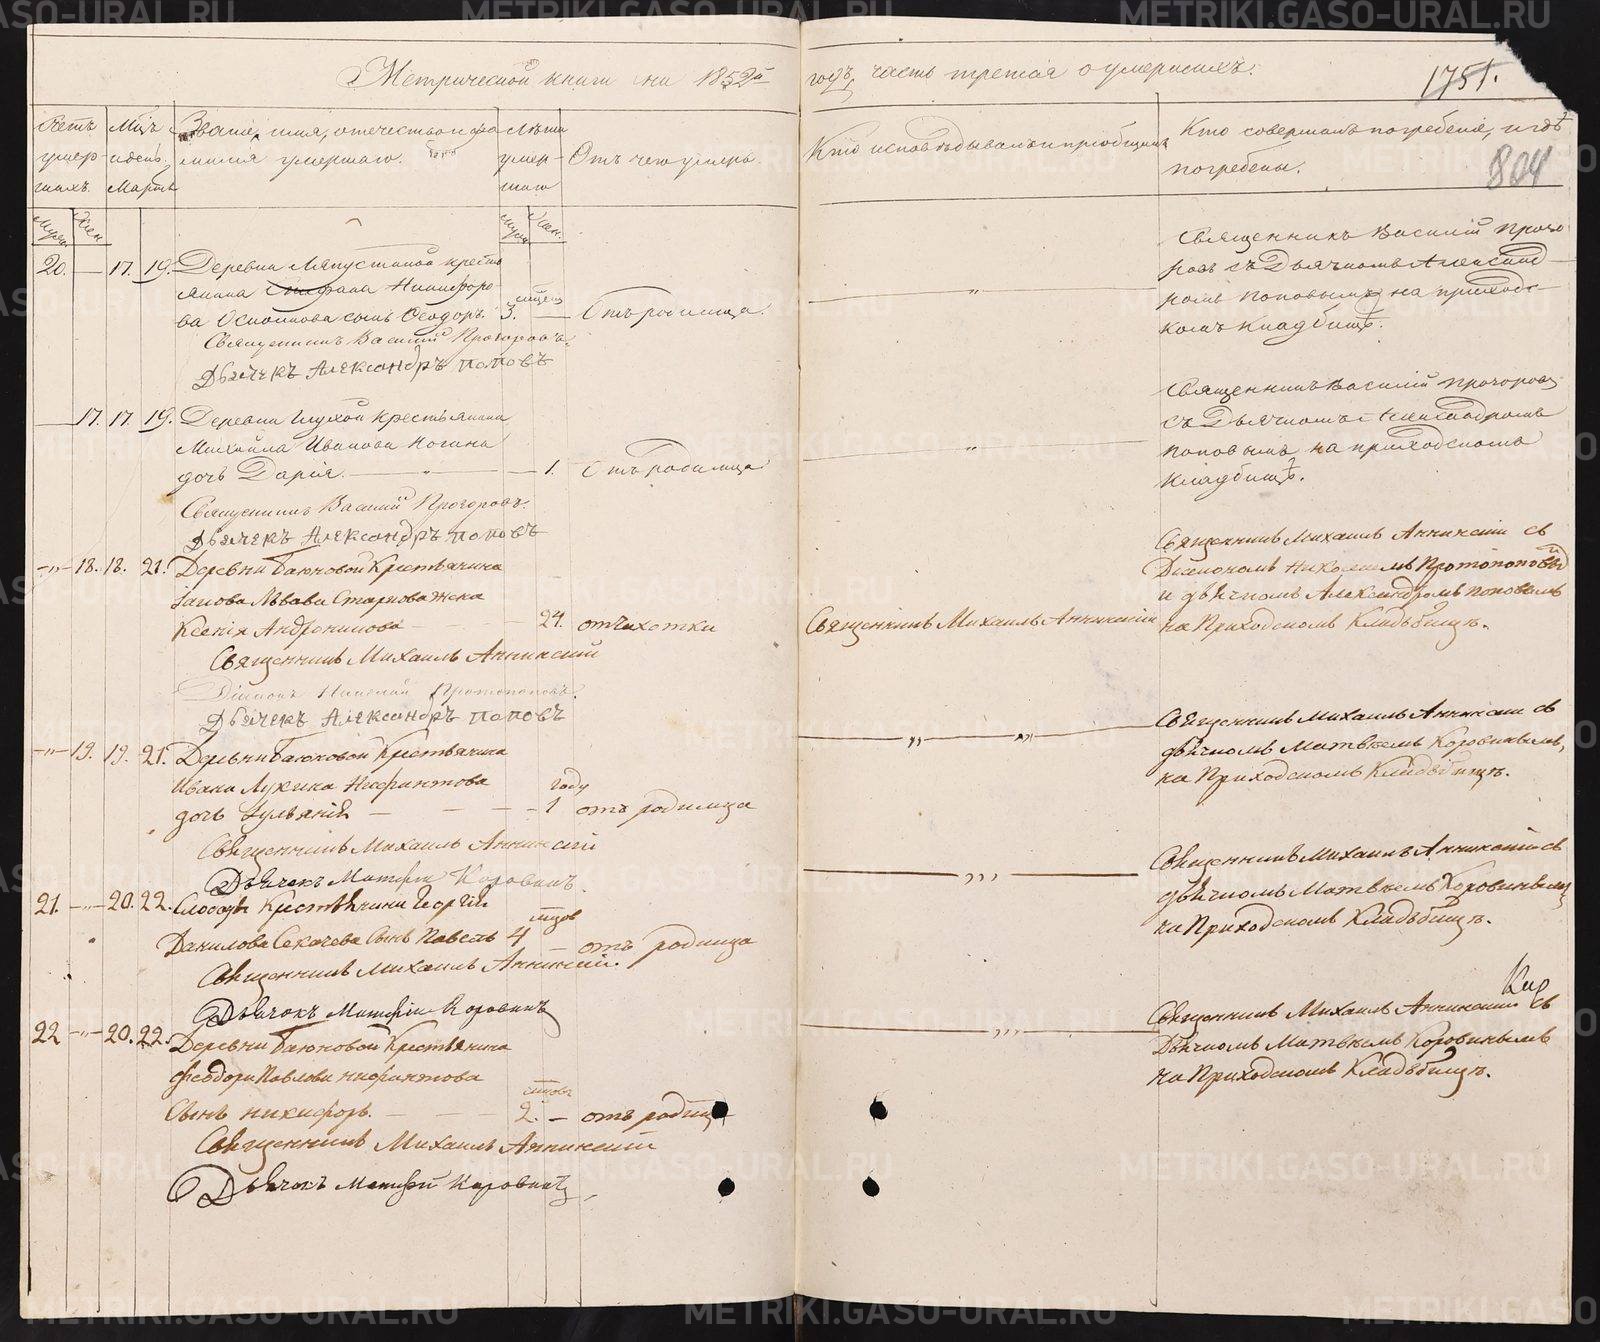 Метрической книги на 1852й
годъ, часть третія о умершихъ.
1751.
804
Счетъ умер-шихъ.
Мцъ и день. Мартъ
Званіе, имя, отечество и фа-
милія умершаго.
Лѣта умер-шаго
Отъ чего умеръ.
Кто исповѣдывалъ и пріобщалъ
Кто совершалъ погребеніе, и гдѣ
погребены.
Муж. Жен.
Муж. Жен.
20. — 17. 19. Деревни Ляпустиной кресть
янина Никифоро-
ва сынъ Ѳеодоръ. 3. мцев — Отъ родимца.
Священникъ Василій Прогоровъ.
Дьячекъ Александръ Поповъ
Священникъ Василій Прохо
ровъ съ Дьячкомъ Александ-
ромъ Поповымъ на приходс-
комъ кладбищѣ.
— 17. 17. 19. Деревни Глухой крестьянина
Михайла Иванова Ногина
дочь Дарія. — „ — 1. Отъ родимца
Священникъ Василій Прогоровъ.
Дьячекъ Александръ Поповъ
Священникъ Василій Прохоровъ
съ Дьячкомъ Александромъ
Поповымъ на приходскомъ
кладбищѣ.
—„— 18. 18. 21. Деревни Баюновой Крестьянина
Іакова Львова жена
Ксенія Андроникова — 24. отъ чихотки
Священникъ Михаилъ Аннинскій
Діаконъ Николай Протопоповъ.
Дьячекъ Александръ Поповъ
Священникъ Михаилъ Аннинскій
Священникъ Михаилъ Аннинскій съ
Діакономъ Николаемъ Протопоповым
и дьячкомъ Александромъ Поповымъ
на Приходскомъ Кладбищѣ.
—„— 19. 19. 21. Деревни Баюновой Крестьянина
Ивана Лукина Нифантова
дочь Ульянія — — 1 году отъ родимца
Священникъ Михаилъ Аннинскій
Дьячекъ Матфій Коровинъ.
Священникъ Михаилъ Аннинскій съ
дьячкомъ Матвѣемъ Коровинымъ,
на Приходскомъ Кладбищѣ.
21. —„— 20. 22. Слободы Крестьянина Георгія
Данилова Секачева Сынъ Павелъ 4 мцов — отъ родимца
Священникъ Михаилъ Аннинскій.
Дьячокъ Матфій Коровинъ
Священникъ Михаилъ Аннинскій съ
дьячкомъ Матвѣемъ Коровинымъ
на Приходскомъ Кладбищѣ.
22 —„— 20. 22. Деревни Баюновой Крестьянина
Феодора Павлова Нифантова
Сынъ Никифоръ. — — 2. мцовъ — отъ родимц
Священникъ Михаилъ Аннинскій
Дьячокъ Матфей Коровинъ
Священникъ Михаилъ Аннинскій съ
Дьячкомъ Матвѣемъ Коровинымъ
на Приходскомъ Кладбищѣ.
METRIKI.GASO-URAL.RU